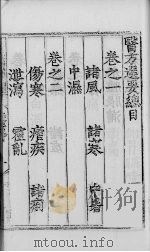 醫方選要總目
卷之一
諸風 諸寒
中濕
卷之二
傷寒 瘧疾 諸痢
泄瀉 霍亂